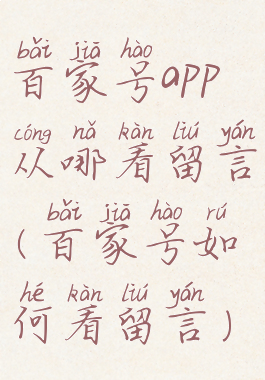 bǎi jiā hào
百家号app
cóng nǎ kàn liú yán
从哪看留言
bǎi jiā hào rú
(百家号如
hé kàn liú yán
何看留言)